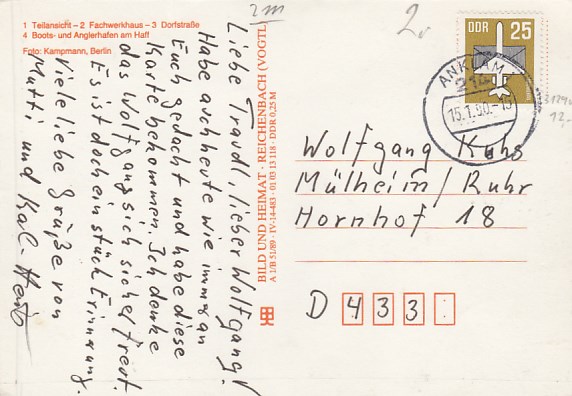 1 Teilansicht – 2 Fachwerkhaus – 3 Dorfstraße
4 Boots- und Anglerhafen am Haff
Foto: Kampmann, Berlin
Liebe Traudl, lieber Wolfgang!
Habe auch heute wie immer an
Euch gedacht und habe diese
Karte bekommen. Ich denke
das Wolfgang sich sicher freut.
Es ist doch ein stück Erinnerung.
Viele liebe Grüße von
Mutti und
BILD UND HEIMAT · REICHENBACH (VOGTL)
A 1/B 51/89 · IV-14-483 · 01 03 13 118 · DDR 0,25 M
2m
2
DDR 25
ANKLAM
2140
15.1.90
12,-
Wolfgang
Mülheim/Ruhr
Hornhof 18
D 433